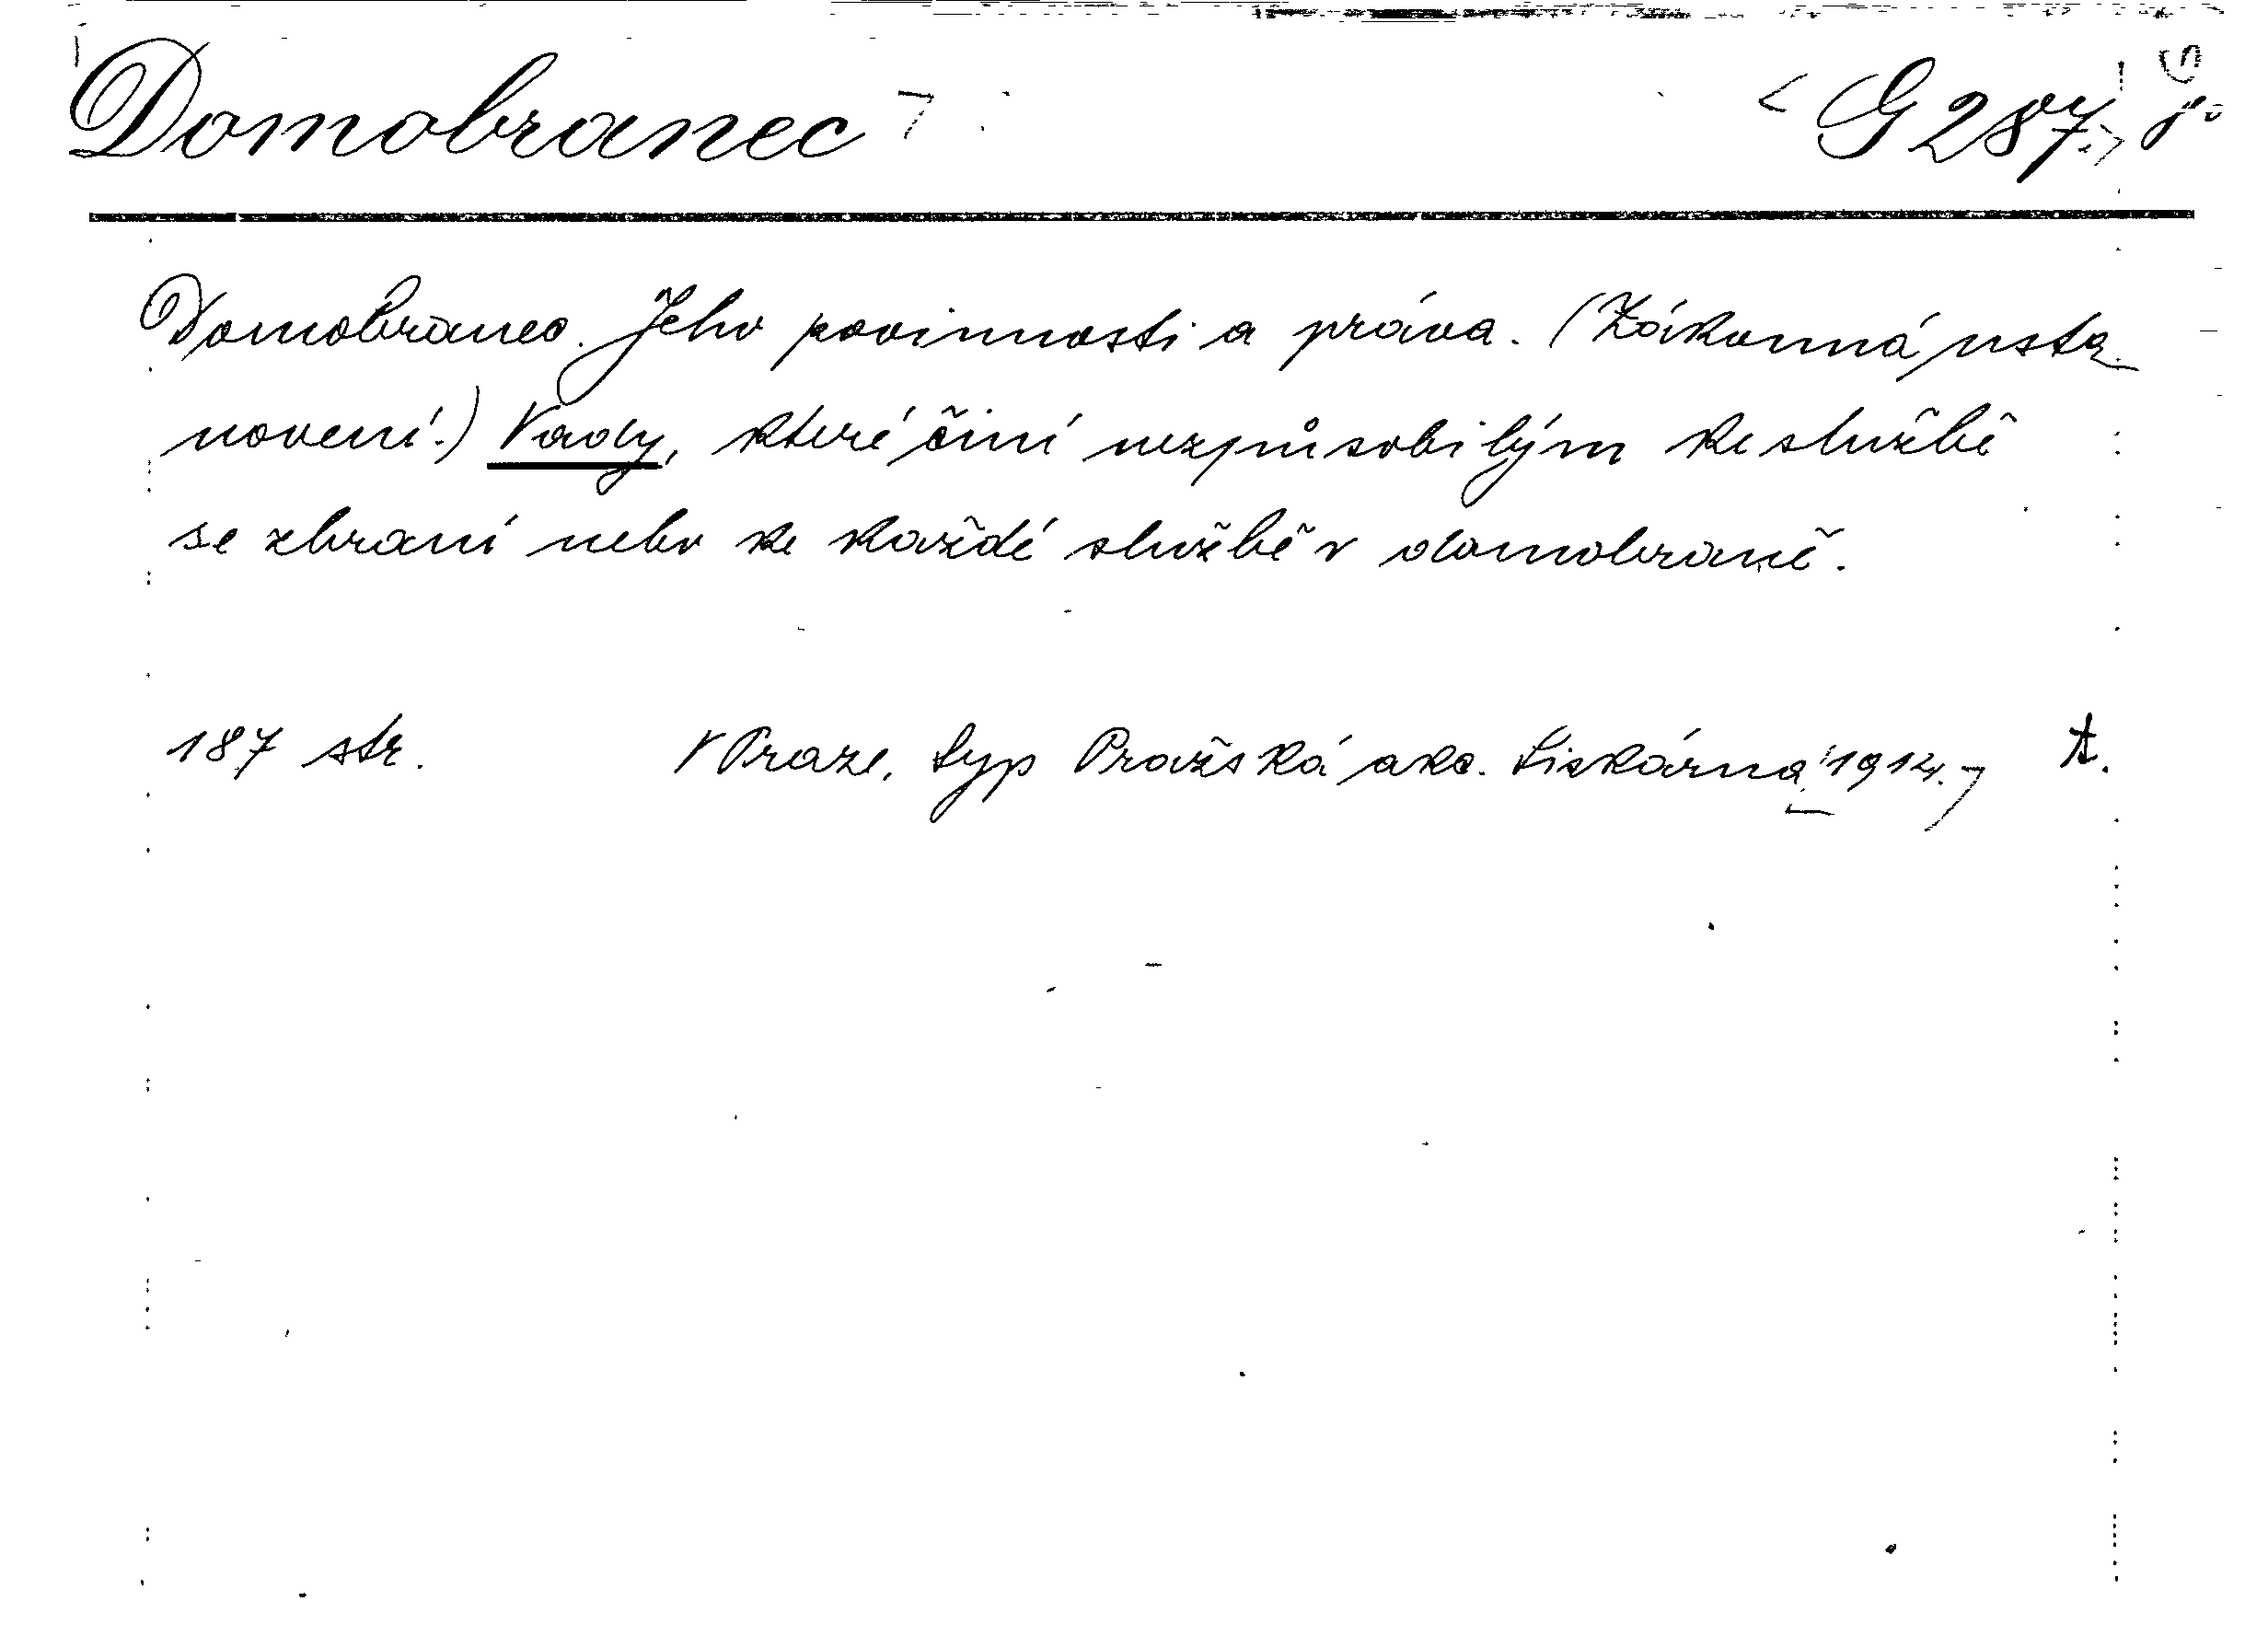 Domobranec G 287.
Domobranec. Jeho povinnosti a práva. (Zákonná usta-
novení.) Vady, které činí nezpůsobilým ke službě
se zbraní nebo ke každé službě v domobraně.
187 str. V Praze, typ Pražská akc. tiskárna 1914. t.